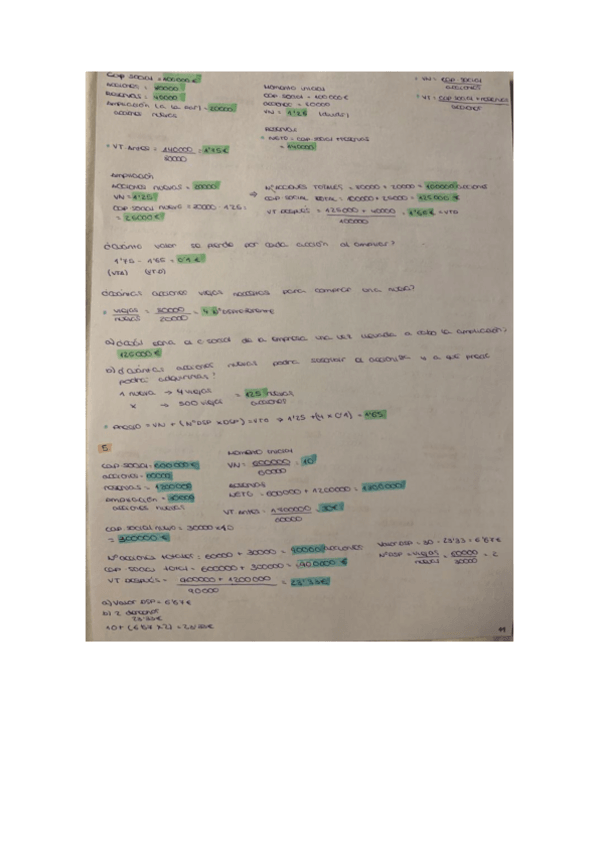 Cap social = 100000 €
acciones = 80000
Reservas = 40000
ampliación (a la par) = 20000
acciones nuevas
Momento inicial
cap. social = 100000 €
acciones = 80000
VN = 1'25
Reservas
NETO = cap. social + reservas
= 140000
VN = cap. social / acciones
VT = cap social + reservas / acciones
VT antes = 140000 / 80000 = 1'75 €
ampliación
acciones nuevas = 20000
VN = 1'25
cap social nuevo = 20000 · 1'25 =
= 25000 €
⇒ Nº acciones totales = 80000 + 20000 = 100000 acciones
cap social total = 100000 + 25000 = 125000 €
VT después = 125000 + 40000 / 100000 = 1'65 € = VTD
¿cuánto valor se pierde por cada acción al ampliar?
1'75 - 1'65 = 0'1 €
(VTA) (VTD)
¿cuántas acciones viejas necesitas para comprar una nueva?
= viejas / nuevas = 80000 / 20000 = 4
a) ¿cuál sería el c social de la empresa una vez llevada a cabo la ampliación?
125000 €
b) ¿cuántas acciones nuevas podrá suscribir el accionista y a que precio
podrá adquirirlas?
1 nueva → 4 viejas
x → 500 viejas
= 125 nuevas
acciones
precio = VN + (Nº DSP x DSP) = VTD ⇒ 1'25 + (4 x 0'1) = 1'65
5.
cap social = 600000 €
acciones = 60000
reservas = 1200000
ampliación = 30000
acciones nuevas
Momento inicial
VN = 600000 / 60000 = 10
Reservas
NETO = 600000 + 1200000 = 1800000
VT antes = 1800000 / 60000 = 30 €
cap social nuevo = 30000 x 10
= 300000 €
Nº acciones totales = 60000 + 30000 = 90000 acciones
cap. social total = 600000 + 300000 = 900000 €
VT después = 900000 + 1200000 / 90000 = 23'33 €
Valor DSP = 30 - 23'33 = 6'67 €
Nº DSP = viejas / nuevas = 60000 / 30000 = 2
a) Valor DSP = 6'67 €
b) 2 derechos
23'33 €
10 + (6'67 x 2) = 23'33 €